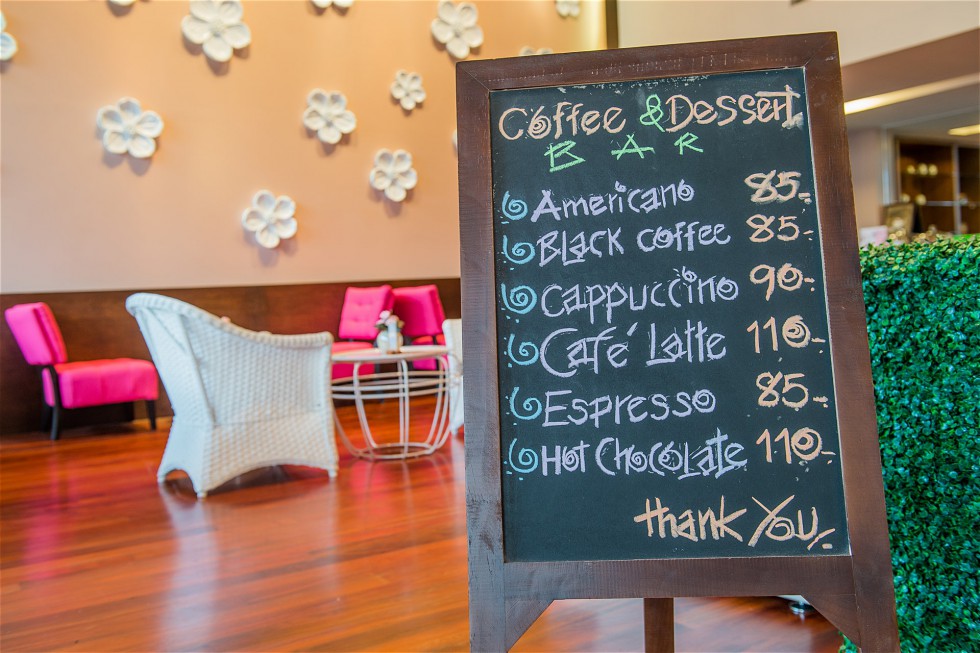 Coffee & Dessert
BAR
Americano 85.-
Black coffee 85.-
Cappuccino 90.-
Café Latte 110.-
Espresso 85.-
Hot Chocolate 110.-
Thank You